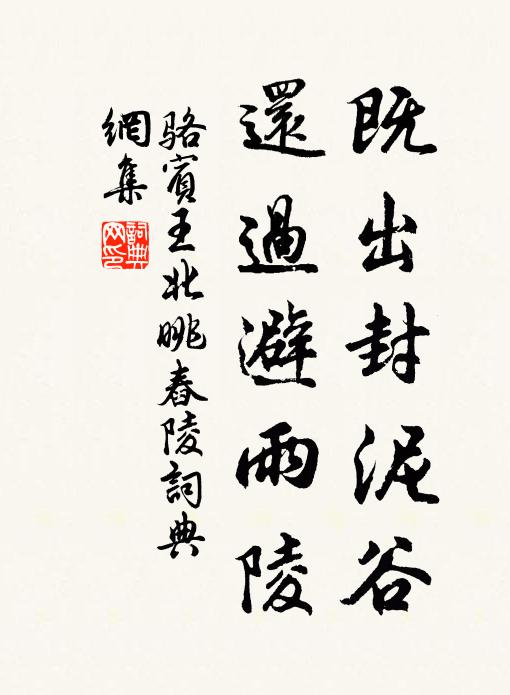 既出封泥谷
還過避雨陵
駱賓王北眺舂陵詞典
網集
詞典
网印